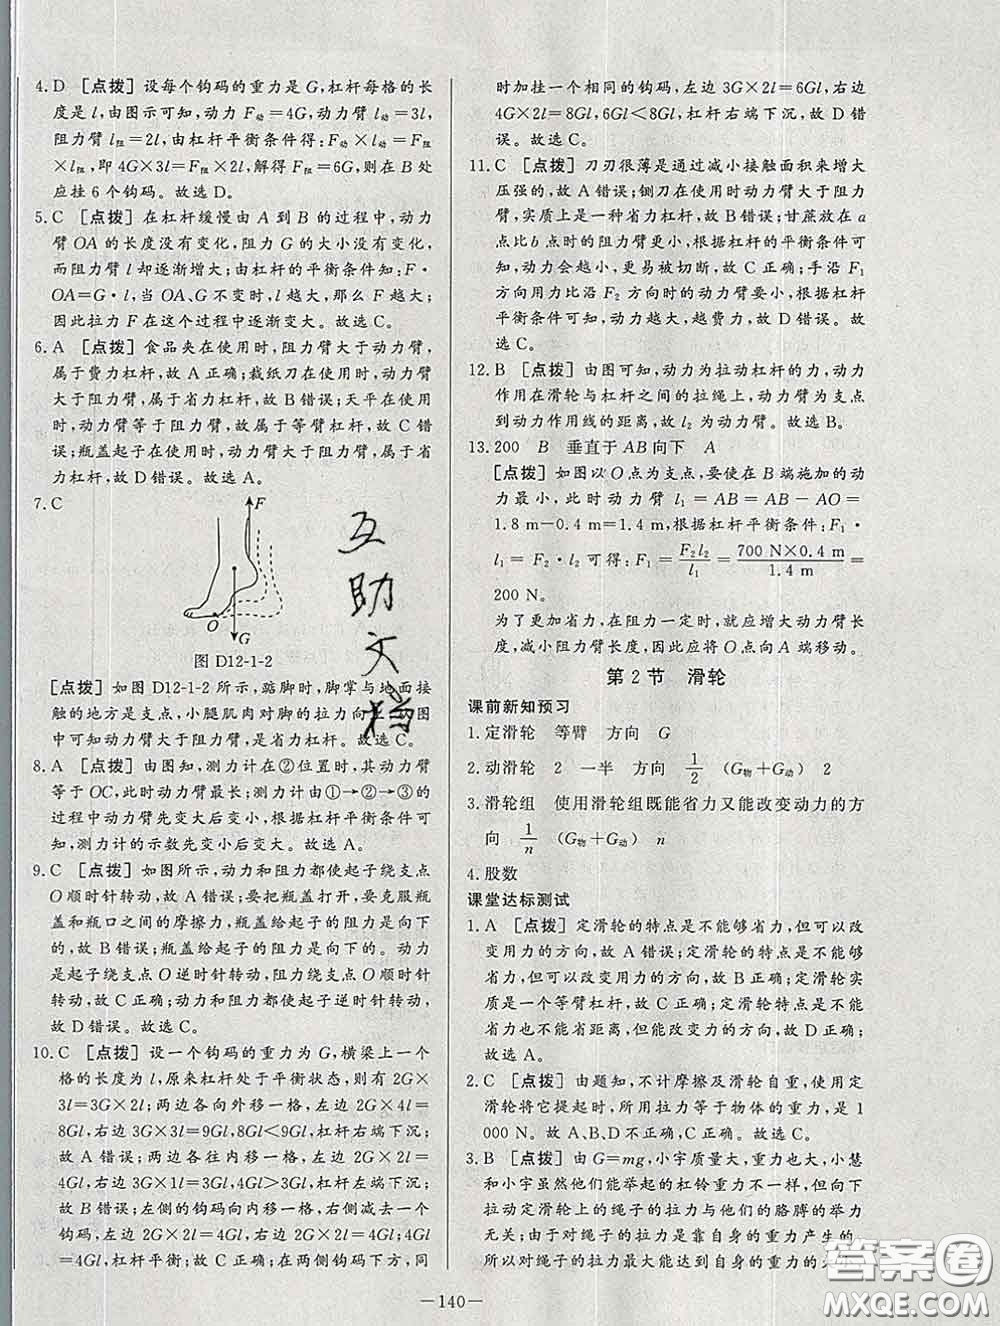 4. D [点拨] 设每个钩码的重力是 G,杠杆每格的长
度是 l,由图示可知,动力 F动=4G,动力臂 l动=3l,
阻力臂 l阻=2l,由杠杆平衡条件得:F动×l动=F阻
×l阻,即 4G×3l=F阻×2l,解得 F阻=6G,则在 B 处
应挂 6 个钩码。故选 D。
5. C [点拨] 在杠杆缓慢由 A 到 B 的过程中,动力
臂 OA 的长度没有变化,阻力 G 的大小没有变化,
而阻力臂 l 却逐渐增大;由杠杆的平衡条件知:F·
OA=G·l,当 OA、G 不变时,l 越大,那么 F 越大;
因此拉力 F 在这个过程中逐渐变大。故选 C。
6. A [点拨] 食品夹在使用时,阻力臂大于动力臂,
属于费力杠杆,故 A 正确;裁纸刀在使用时,动力臂
大于阻力臂,属于省力杠杆,故 B 错误;天平在使用
时,动力臂等于阻力臂,故属于等臂杠杆,故 C 错
误;瓶盖起子在使用时,动力臂大于阻力臂,属于省
力杠杆,故 D 错误。故选 A。
7. C
F
O
G
图 D12-1-2
[点拨] 如图 D12-1-2 所示,踮脚时,脚掌与地面接
触的地方是支点,小腿肌肉对脚的拉力向上,从图
中可知动力臂大于阻力臂,是省力杠杆。故选 C。
8. A [点拨] 由图知,测力计在②位置时,其动力臂
等于 OC,此时动力臂最长;测力计由①→②→③的
过程中动力臂先变大后变小,根据杠杆平衡条件可
知,测力计的示数先变小后变大。故选 A。
9. C [点拨] 如图所示,动力和阻力都使起子绕支点
O 顺时针转动,故 A 错误;要把瓶盖打开,要克服瓶
盖和瓶口之间的摩擦力,瓶盖给起子的阻力是向下
的,故 B 错误;瓶盖给起子的阻力是向下的。动力
是起子绕支点 O 逆时针转动,阻力绕支点 O 顺时针
转动,故 C 正确;动力和阻力都使起子逆时针转动,
故 D 错误。故选 C。
10. C [点拨] 设一个钩码的重力为 G,横梁上一个
格的长度为 l,原来杠杆处于平衡状态,则有 2G×
3l=3G×2l;两边各向外移一格,左边 2G×4l=
8Gl,右边 3G×3l=9Gl,8Gl<9Gl,杠杆右端下沉,
故 A 错误;两边各往内移一格,左边 2G×2l=
4Gl,右边 3G×1l=3Gl,4Gl>3Gl,杠杆左端下沉,
故 B 错误;左侧的钩码向内移一格,右侧减去一个
钩码,左边 2G×2l=4Gl,右边 2G×2l=4Gl,4Gl
=4Gl,杠杆平衡;故 C 正确;在两侧钩码下方,同
互
助
文
档
时加挂一个相同的钩码,左边 3G×2l=6Gl,右边
4G×2l=8Gl,6Gl<8Gl,杠杆右端下沉,故 D 错
误。故选 C。
11. C [点拨] 刀刃很薄是通过减小接触面积来增大
压强的,故 A 错误;铡刀在使用时动力臂大于阻力
臂,实质上是一种省力杠杆,故 B 错误;甘蔗放在 a
点比 b 点时的阻力臂更小,根据杠杆的平衡条件可
知,动力会越小,更易被切断,故 C 正确;手沿 F1
方向用力比沿 F2 方向时的动力臂要小,根据杠杆
平衡条件可知,动力越大,越费力,故 D 错误。故
选 C。
12. B [点拨] 由图可知,动力为拉动杠杆的力,动力
作用在滑轮与杠杆之间的拉绳上,动力臂为支点
到动力作用线的距离,故 l2 为动力臂。故选 B。
13. 200 B 垂直于 AB 向下 A
[点拨] 如图以 O 点为支点,要使在 B 端施加的动
力最小,此时动力臂 l1=AB=AB-AO=
1.8 m-0.4 m=1.4 m,根据杠杆平衡条件:F1·
l1=F2·l2 可得:F1=F2l2/l1=700 N×0.4 m/1.4 m=
200 N。
为了更加省力,在阻力一定时,就应增大动力臂长
度,减小阻力臂长度,因此应将 O 点向 A 端移动。
第 2 节 滑轮
课前新知预习
1. 定滑轮 等臂 方向 G
2. 动滑轮 2 一半 方向 1/2 (G物+G动) 2
3. 滑轮组 使用滑轮组既能省力又能改变动力的方
向 1/n (G物+G动) n
4. 股数
课堂达标测试
1. A [点拨] 定滑轮的特点是不能够省力,但可以改
变用力的方向,故 A 错误;定滑轮的特点是不能够
省力,但可以改变用力的方向,故 B 正确;定滑轮实
质是一个等臂杠杆,故 C 正确;定滑轮特点是不能
省力也不能省距离,但能改变力的方向,故 D 正确;
故选 A。
2. C [点拨] 由题知,不计摩擦及滑轮自重,使用定
滑轮将它提起时,所用拉力等于物体的重力,是 1
000 N。故 A、B、D 不正确,C 正确。故选 C。
3. B [点拨] 由 G=mg,小宇质量大,重力也大,小慧
和小宇虽然他们能举起的杠铃重力不一样,但向下
拉动定滑轮上的绳子的拉力与他们的胳膊的举力
无关;由于对绳子的拉力是靠自身的重力产生的,
所以对绳子的拉力最大能达到自身的重力的大小,
— 140 —
答案圈
MXQE.COM